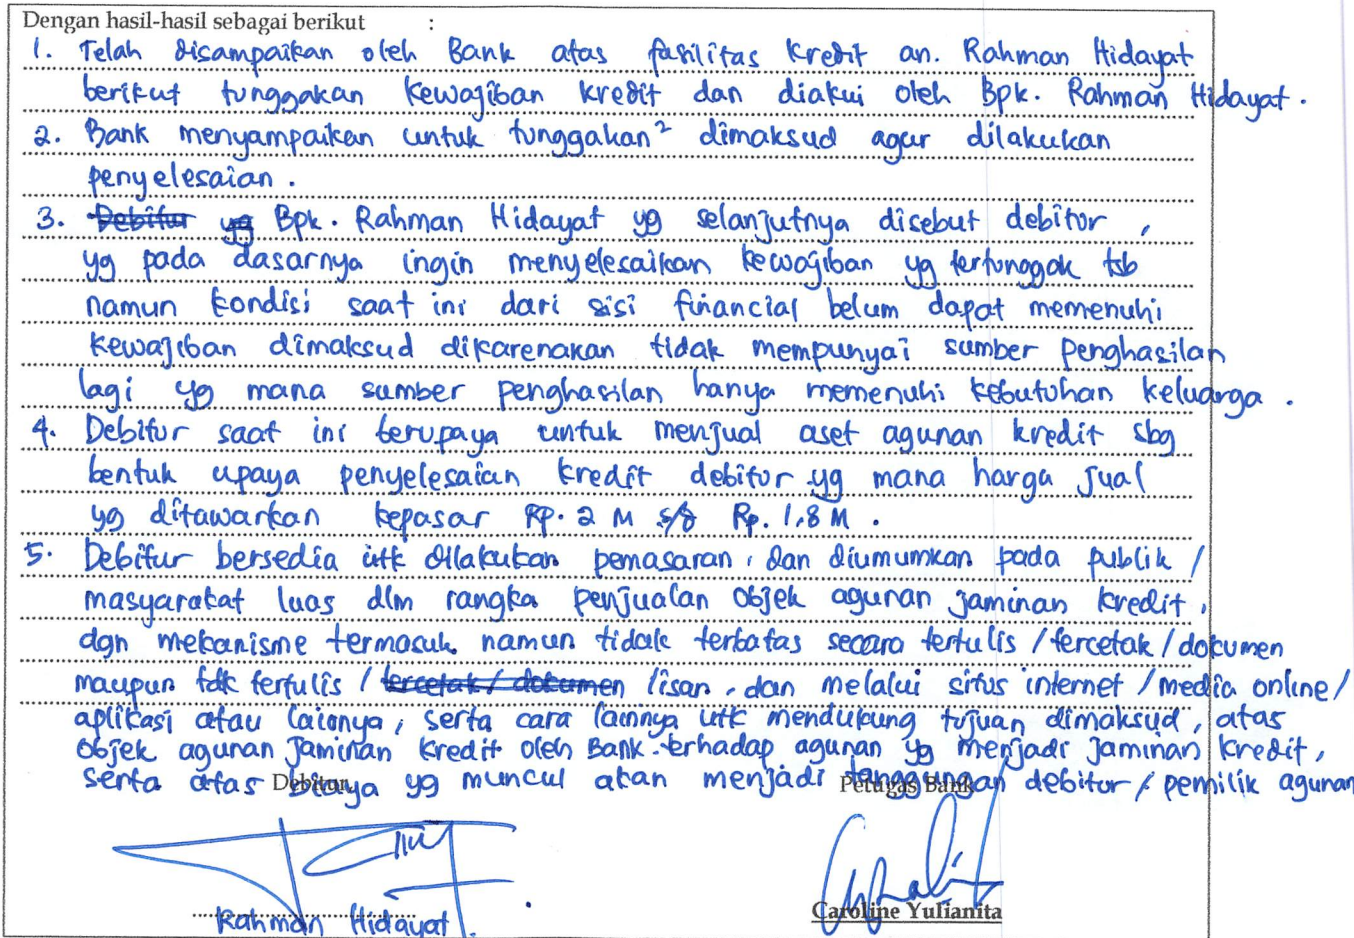 Dengan hasil-hasil sebagai berikut :
1. Telah disampaikan oleh Bank atas fasilitas kredit an. Rahman Hidayat
berikut tunggakan kewajiban kredit dan diakui oleh Bpk. Rahman Hidayat.
2. Bank menyampaikan untuk tunggakan² dimaksud agar dilakukan
penyelesaian.
3. Debitur yg Bpk. Rahman Hidayat yg selanjutnya disebut debitur,
yg pada dasarnya ingin menyelesaikan kewajiban yg tertunggak tsb
namun kondisi saat ini dari sisi financial belum dapat memenuhi
kewajiban dimaksud dikarenakan tidak mempunyai sumber penghasilan
lagi yg mana sumber penghasilan hanya memenuhi kebutuhan keluarga.
4. Debitur saat ini berupaya untuk menjual aset agunan kredit sbg
bentuk upaya penyelesaian kredit debitur yg mana harga jual
yg ditawarkan kepasar Rp. 2 M s/d Rp. 1,8 M.
5. Debitur bersedia utk dilakukan pemasaran, dan diumumkan pada publik /
masyarakat luas dlm rangka penjualan objek agunan jaminan kredit,
dgn mekanisme termasuk namun tidak terbatas secara tertulis / tercetak / dokumen
maupun tdk tertulis / tercetak / dokumen lisan, dan melalui situs internet / media online /
aplikasi atau lainnya, serta cara lainnya utk mendukung tujuan dimaksud, atas
objek agunan jaminan kredit oleh Bank terhadap agunan yg menjadi jaminan kredit,
serta atas biaya yg muncul akan menjadi tanggungan debitur / pemilik agunan
Debitur Petugas Bank
Rahman Hidayat. Caroline Yulianita